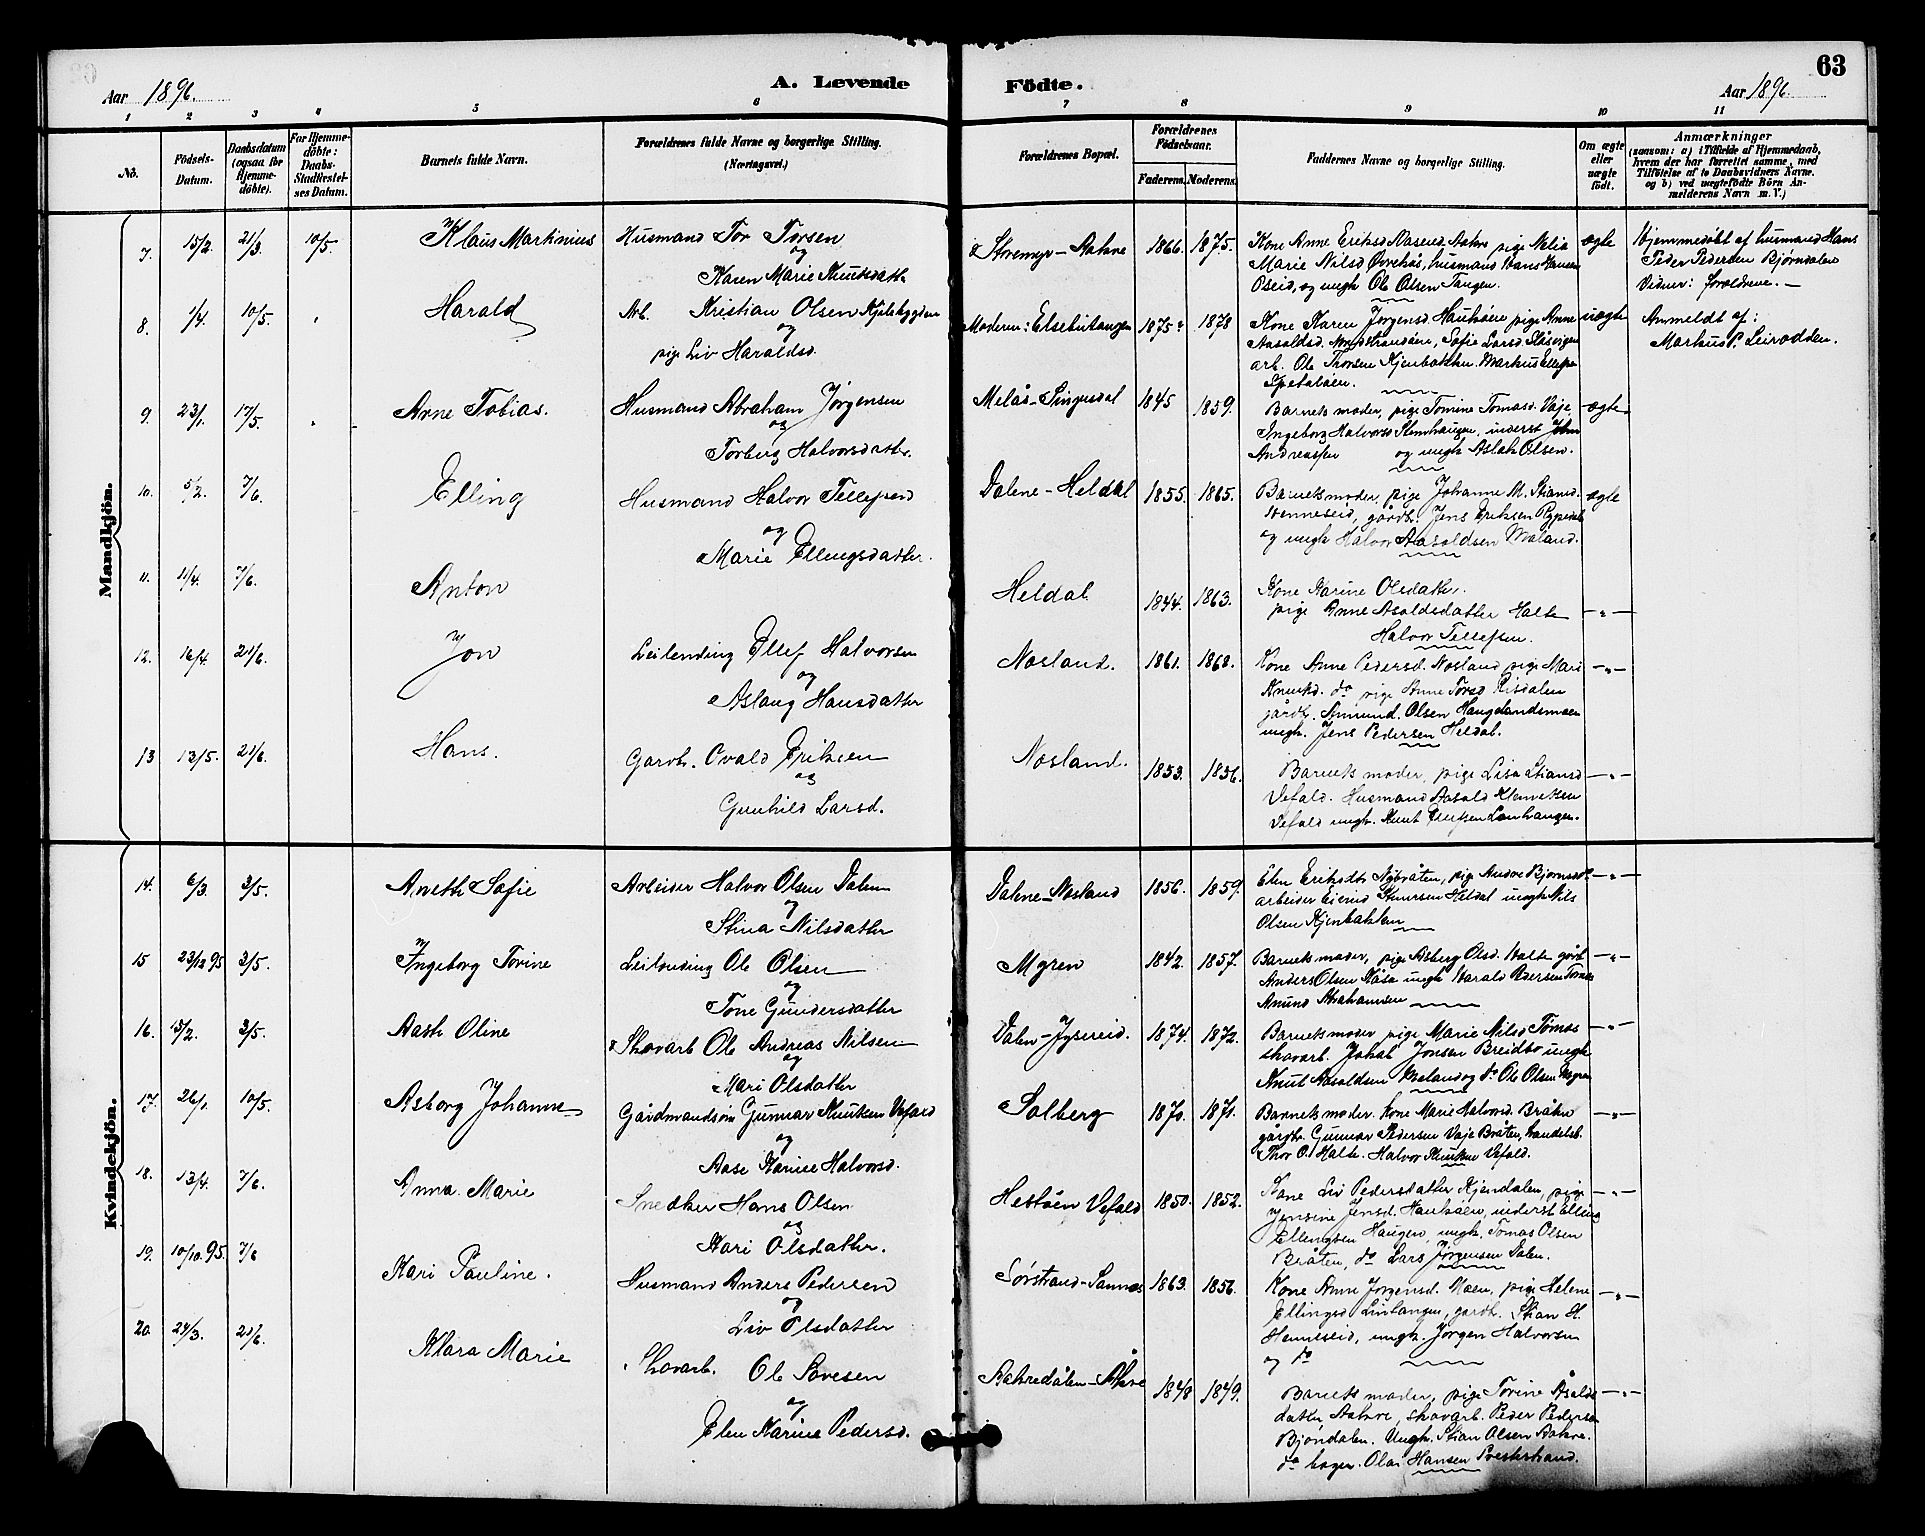 63
Aar 1896. A. Levende Födte. Aar 1896.
1 2 3 4 5 6 7 8 9 10 11
No.
Födsels-Datum.
Daabsdatum (ogsaa for Hjemmedöbte).
For Hjemmedöbte: Daabs-Stadfæstelses Datum.
Barnets fulde Navn.
Forældrenes fulde Navne og borgerlige Stilling. (Næringsvei.)
Forældrenes Bopæl.
Forældrenes Födselsaar.
Faderens. Moderens.
Faddernes Navne og borgerlige Stilling.
Om ægte eller uægte födt.
Anmærkninger
(saasom: a) i Tilfælde af Hjemmedaab,
hvem der har forrettet samme, med
Tilföielse af to Daabsvidners Navne.
og b) ved uægtefödte Börn Anmelderens Navn m. V.)
Mandkjön.
7. 15/2. 21/3. 10/5. Klaus Martinius Husmand Tor Torsen
og
Karen Marie Knutsdatte
Storemyr-Aakre 1866. 1875. Kone Anne Eriksd Aaseid Aakre pige Nelia
Marie Nilsd Övrekås, husmand Hans Hansen
Öseid, og ungk Ole Olsen Tangen.
ægte
Hjemmedöbt af husmand Hans
Peder Pedersen Bjørndalen
Vidner: forældrene. —
8. 1/4. 10/5. Harald Arb. Kristian Olsen Kjilebygden
og
pige Liv Haraldsd.
Moderen: Elsebutangen 1875? 1878 Kone Karen Jørgensd. Haukøen pige Anne
Aasoldsd. Nordstrandøen, Sofie Larsd. Slåsvigen
arb. Ole Thorsen Kjenbakken Markus Ellefsen
Spetaløen.
uægte
Anmeldt af:
Markus P. Leirodden.
9. 23/1. 17/5. Arne Tobias. Husmand Abraham Jörgensen
og
Torberg Halvorsdatter.
Melås-Singusdal 1845 1859. Barnets moder, pige Tomine Tomasd. Vaje,
Ingeborg Halvorsd Stenhaugen, inderst John
Andreassen og ungk Aslak Olsen.
ægte
10. 5/2. 7/6. Elling Husmand Halvor Tellefsen
og
Marie Ellingsdatter.
Dalene-Heldal 1855. 1865. Barnets moder, pige Johanne M. Stiansd.
Henneseid, gårdb. Jens Eriksen Rypedal
og ungk Halvor Aasoldsen Moland.
ægte
11. 11/4. 7/6. Anton
Heldal 1844. 1863. Kone Karine Olsdatter,
pige Anne Asoldsdatter Halte
Halvor Tellefsen.
— „ —
12. 16/4. 21/6. Jon Leilending Ellef Halvorsen
og
Aslaug Hansdatter
Nosland. 1861. 1868. Kone Anne Pedersd. Nosland pige Mari
Knutsd. do pige Anne Torsd Risdalen
gårdb. Amund. Olsen Haugelandsmoen
ungk. Jens Pedersen Heldal.
— „ —
13 13/5. 21/6. Hans. Gardb. Ovald Eriksen
og
Gunhild Larsd.
Nosland. 1853. 1856. Barnets moder, pige Lisa Stiansd
Vefald. Husmand Aasold Klemetsen
Vefald ungk. Knut Ellefsen Lonhaugen.
— „ —
Kvindekjön.
14. 6/3. 3/5. Aneth Sofie Arbeider Halvor Olsen Dalen
og
Stina Nilsdatter
Dalene-Nosland 1856. 1859. Elen Eriksdtr Nybråten, pige Andrea Bjørnsd.
arbeider Eivind Knutsen Heldal ungk Nils
Olsen Kjenbakken
— „ —
15 23/12 95 3/5. Ingeborg Torine Leilending Ole Olsen
og
Tone Gundersdatter
Myren 1842. 1857. Barnets moder, pige Asberg Olsd. Halte gårdb
Anders Olsen Kåsa ungk Harald Pedersen Tomas
Anund Abrahamsen
— „ —
16. 15/2. 3/5. Aaste Oline Skovarb Ole Andreas Nilsen
og
Mari Olsdatter
Dalen-Jysereid. 1874. 1872. Barnets moder pige Marie Nilsd Tømas
skovarb. Jakob Jonsen Breidbo ungk
Knut Aasoldsen Moland og do Ole Olsen Myren
— „ —
17. 26/1. 10/5. Asborg Johanne Gårdmandsön Gunnar Knutsen Vefald
og
Aase Karine Halvorsd.
Solberg 1870. 1871. Barnets moder. Kone Marie Halvorsd. Bråten
gårdb. Gunnar Pedersen Vaje Bråten, handelsb.
Thor O. Halte. Halvor Knutsen Vefald.
— „ —
18. 13/4. 7/6. Anna Marie Snedker Hans Olsen
og
Kari Olsdatter.
Hestøen Vefald 1850. 1852. Kone Liv Pedersdatter Kjendalen, pige
Jensine Jensd. Haukøen, inderst Elling
Ellingsen Haugen, ungk. Tomas Olsen
Bråten, do Lars Jørgensen Dalen.
— „ —
19. 10/10. 95. 7/6 Kari Pauline. Husmand Anders Pedersen
og
Liv Olsdatter
Sörstrand-Sannes 1863. 1856. Kone Anne Jørgensd. Moen, pige Helene
Ellingsd Lintangen, gardb. Stian H.
Henneseid, ungk. Jørgen Halvorsen
og do
— „ —
20. 24/3. 21/6. Klara Marie Skovarb. Ole Sovesen
og
Elen Karine Pedersd.
Aakredålen-Åkre 1848 1849. Barnets moder, pige Torine Åsolds
datter Aakre, skovarb. Peder Pedersen
Bjöndalen. Ungk. Stian Olsen Aakre.
do Olai Hansen Svesterstrand.
— „ —